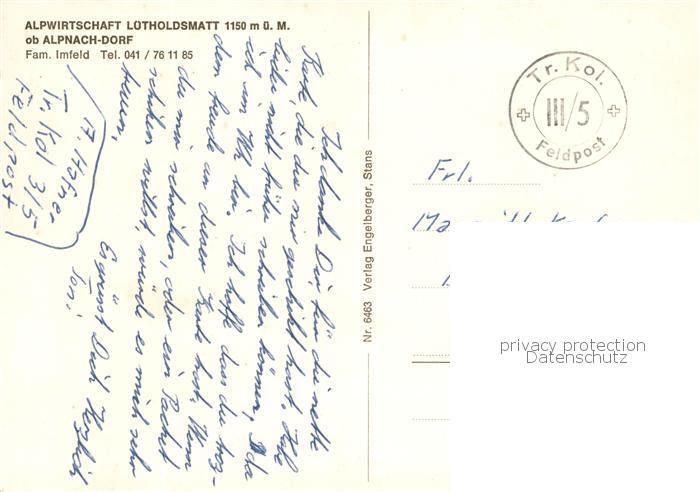 ALPWIRTSCHAFT LÜTHOLDSMATT 1150 m ü. M.
ob ALPNACH-DORF
Fam. Imfeld Tel. 041 / 76 11 85
Ich danke Dir für die nette
Karte, die du mir geschickt hast. Habe
leider nicht früher schreiben können, da
ich im WK bin. Ich hoffe dass du trotz-
dem freude an dieser Karte hast. Wenn
du mir schreiben, oder ein Packet
schicken willst, würde es mich sehr
freuen.
Es grüsst Dich Herzlich
Toni
Hofner
Tr. Kol 3/5
Feldpost
Nr. 6463 Verlag Engelberger, Stans
Tr. Kol.
III/5
Feldpost
Frl.
privacy protection
Datenschutz